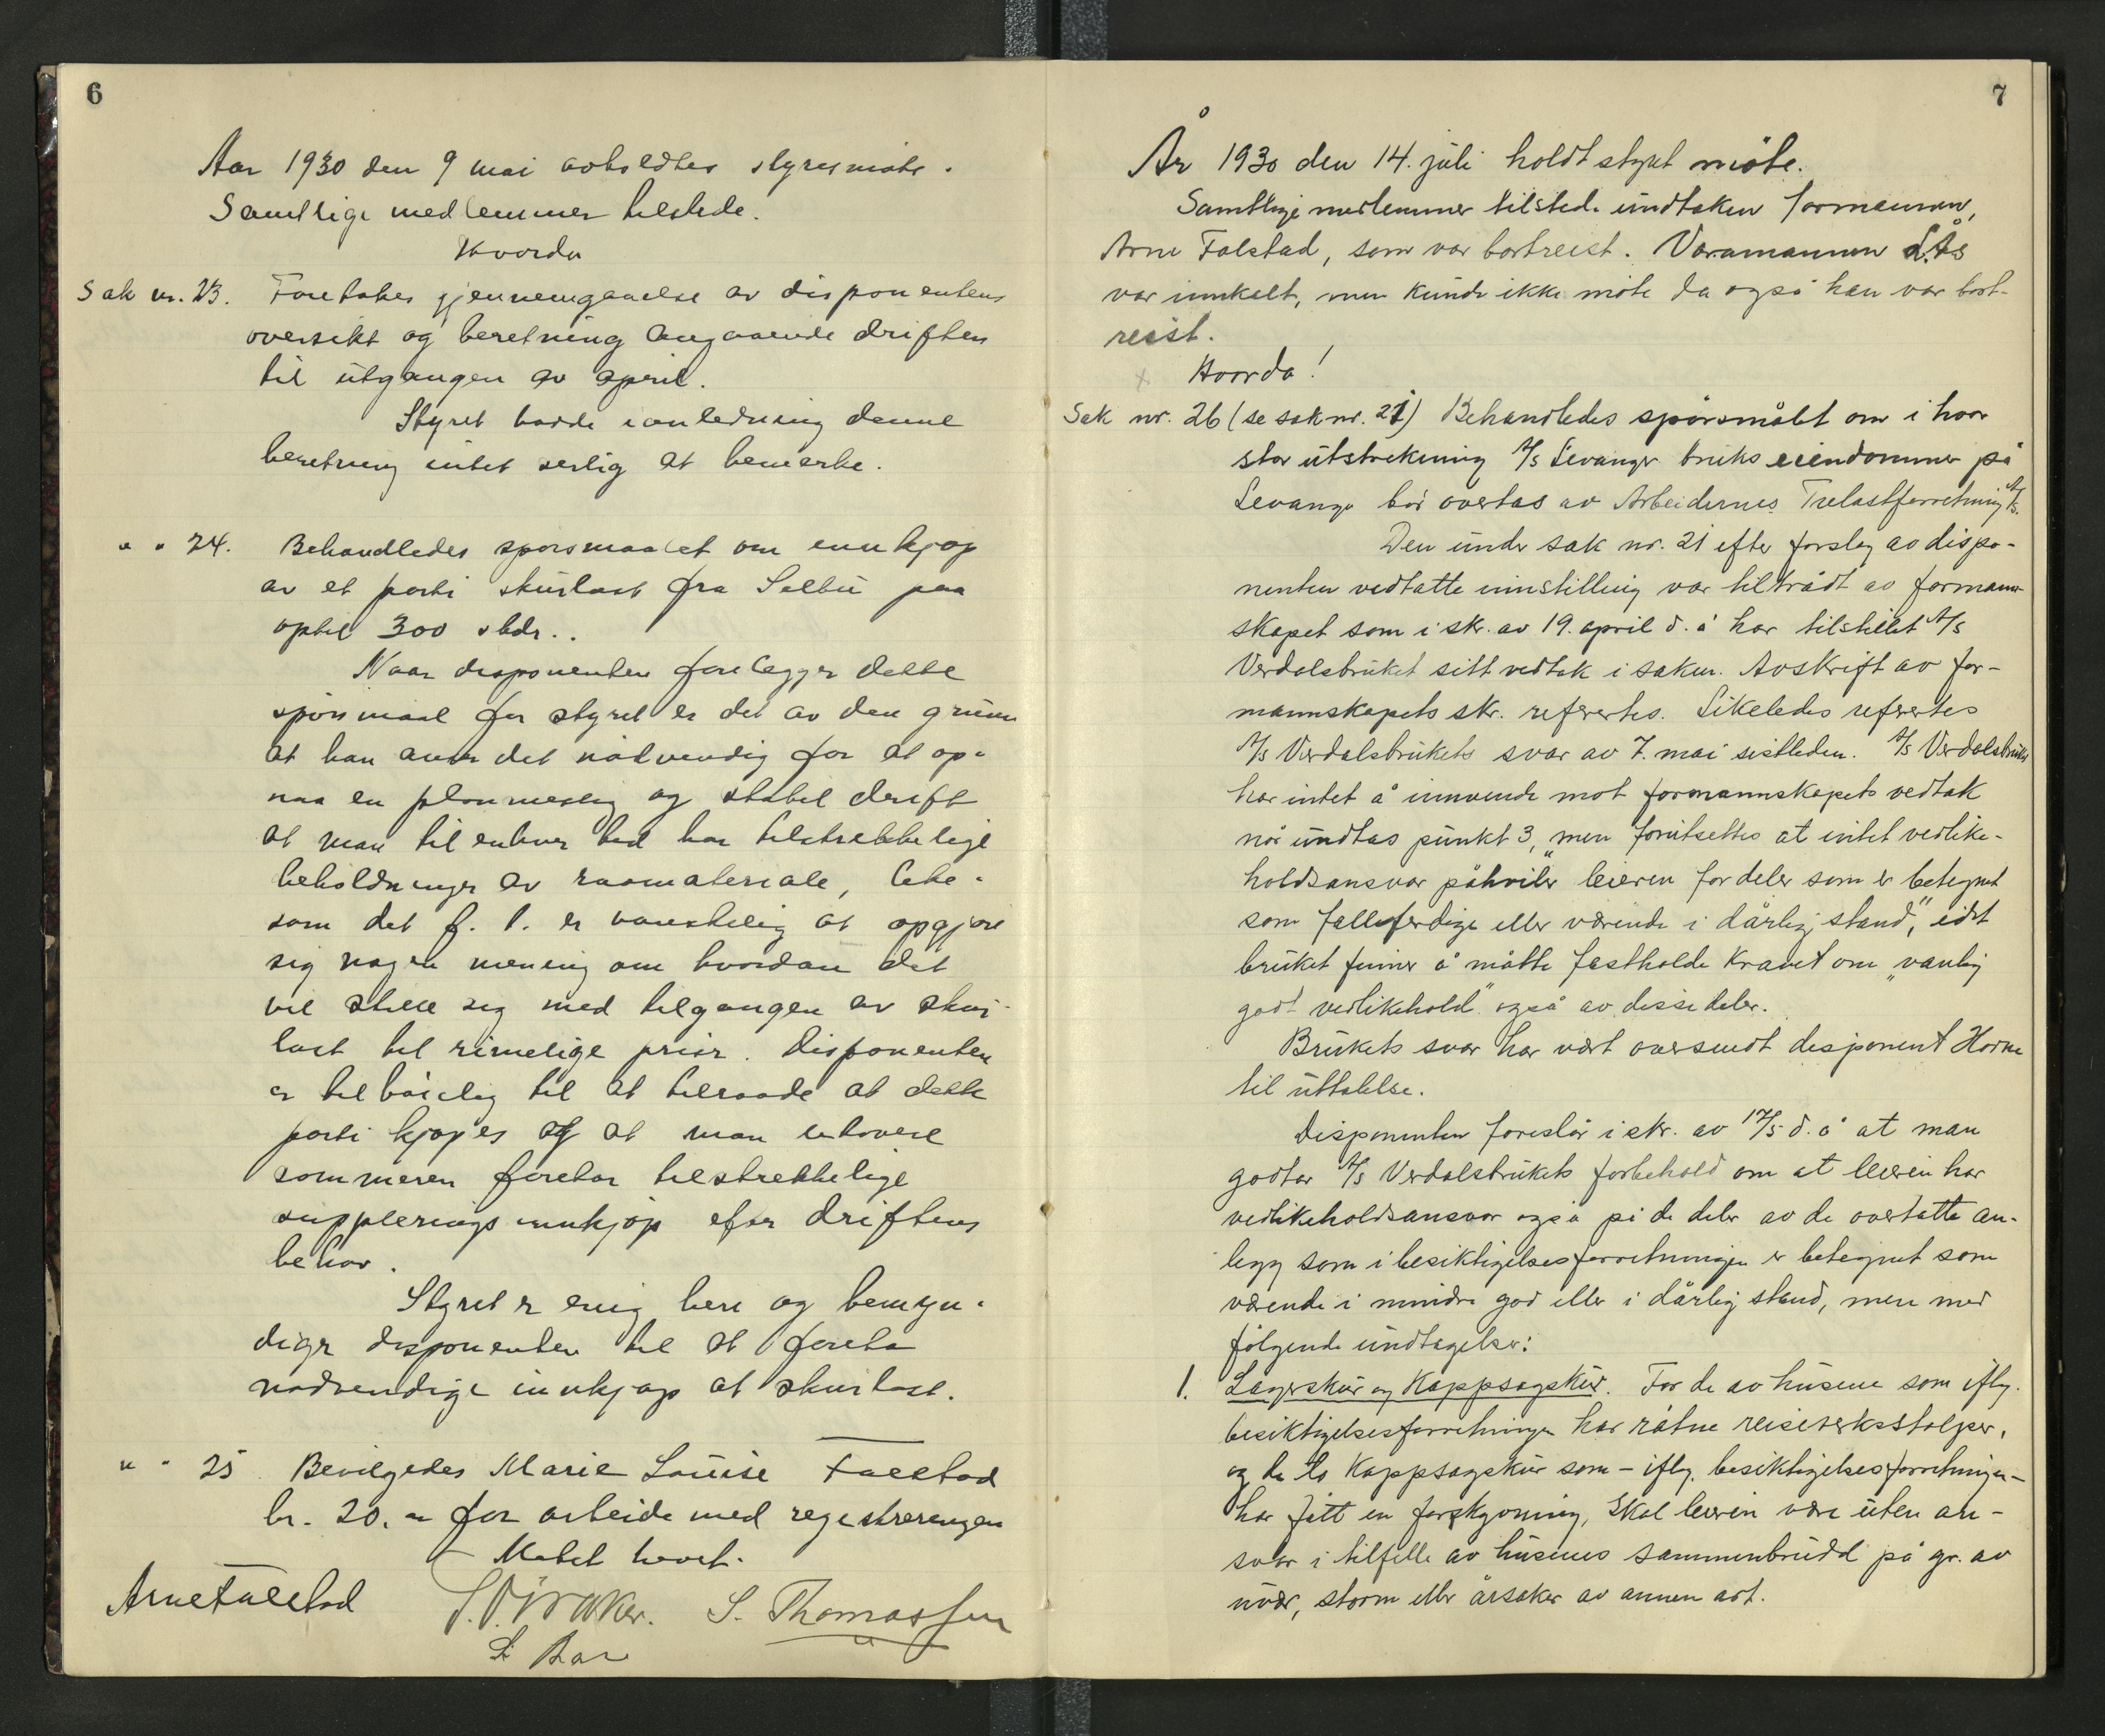 6
Aar 1930 den 9 mai avholdtes styresmøte.
Samtlige medlemmer tilstede.
Hvorda
Sak nr. 23. Foretokes gjennemgaaelse av disponentens
oversikt og beretning angaaende driften
til utgangen av april.
Styret hadde i anledning denne
beretning intet serlig at bemerke.
" " 24. Behandledes spørsmaalet om innkjøp
av et parti skurlast fra Selbu paa
optil 300 stdr..
Naar disponenten forelegger dette
spørsmaal for styret er det av den grunn
at han anser det nødvendig for at op-
naa en planmessig og stabil drift
at man til enhver tid har tilstrekkelige
beholdninger av raamateriale, like-
som det f. t. er vanskelig at opgjøre
sig nogen mening om hvordan det
vil stille sig med tilgangen av skur-
last til rimelige priser. Disponenten
er tilbøielig til at tilraade at dette
parti kjøpes og at man utover
sommeren foretar tilstrekkelige
suppleringsinnkjøp efter driftens
behov.
Styret er enig heri og bemyn-
diger disponenten til at foreta
nødvendige innkjøp at skurlast.
" " 25. Bevilgedes Marie Louise Falstad
kr. 20.- for arbeide med registreringen
Møtet hevet.
Arne Falstad S. Thomassen
7
År 1930 den 14. juli holdt styret möte.
Samtlige medlemmer tilstede undtaken formannen,
Arne Falstad, som var bortreist. Varamannen L. Ås
var innkalt, men kunde ikke möte da også han var bort-
reist.
Hvorda!
Sak nr. 26 (se sak nr. 21) Behandledes spörsmålet om i hvor
stor utstrekning A/s Levanger bruks eiendommer på
Levanger bör overtas av Arbeidernes Trelastforretning A/s.
Den under sak nr. 21 efter forslag av dispo-
nenten vedtatte innstilling var tiltrådt av formann-
skapet som i skr. av 19. april d. å har tilstillet A/s
Verdalsbruket sitt vedtak i saken. Avskrift av for-
mannskapets skr. refertes. Likeledes refertes
A/s Verdalsbrukets svar av 7. mai sistleden. A/s Verdalsbruket
har intet å innvende mot formannskapets vedtak
når undtas punkt 3, "men forutsettes at intet vedlike-
holdsansvar påhviler leieren for deler som er betegnet
som falleferdige eller værende i dårlig stand", idet
bruket finner å måtte fastholde kravet om "vanlig
godt vedlikehold" også av disse deler.
Brukets svar har vært oversendt disponent Horne
til uttalelse.
Disponenten foreslår i skr. av 17/5 d. å at man
godtar A/s Verdalsbrukets forbehold om at leieren har
vedlikeholdsansvar også på de deler av de overtatte an-
legg som i besiktigelsesforretningen er betegnet som
værende i mindre god eller i dårlig stand, men med
fölgende undtagelser:
1. Lagerskur og Kappsagskur. For de av husene som iflg.
besiktigelsesforretningen har råtne reiseverksstolper,
og de to Kappsagskur som - iflg. besiktigelsesforretningen -
har fått en forskyvning, skal leieren være uten an-
svar i tilfelle av husenes sammenbrudd på gr. av
uvær, storm eller årsaker av annen art.